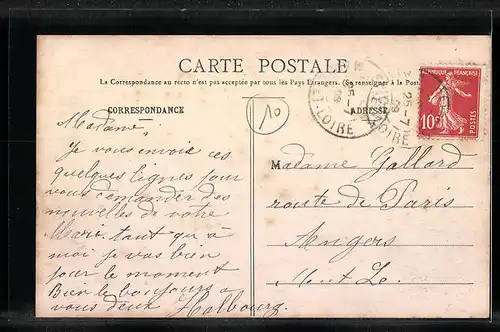 CARTE POSTALE
La Correspondance au recto n'est pas acceptée par tous les Pays Etrangers. (Se renseigner à la Poste)
CORRESPONDANCE
ADRESSE
10
ET-LOIRE
25-7
LOIRE
RÉPUBLIQUE FRANÇAISE
10c
POSTES
Madame,
Je vous envoie ces
quelques lignes pour
vous demander des
nouvelles de votre
Mari. tant qu'à
moi je vas bien
pour le moment
Bien le bonjour a
vous deux Halbourg.
Madame Gallard
route de Paris
Angers